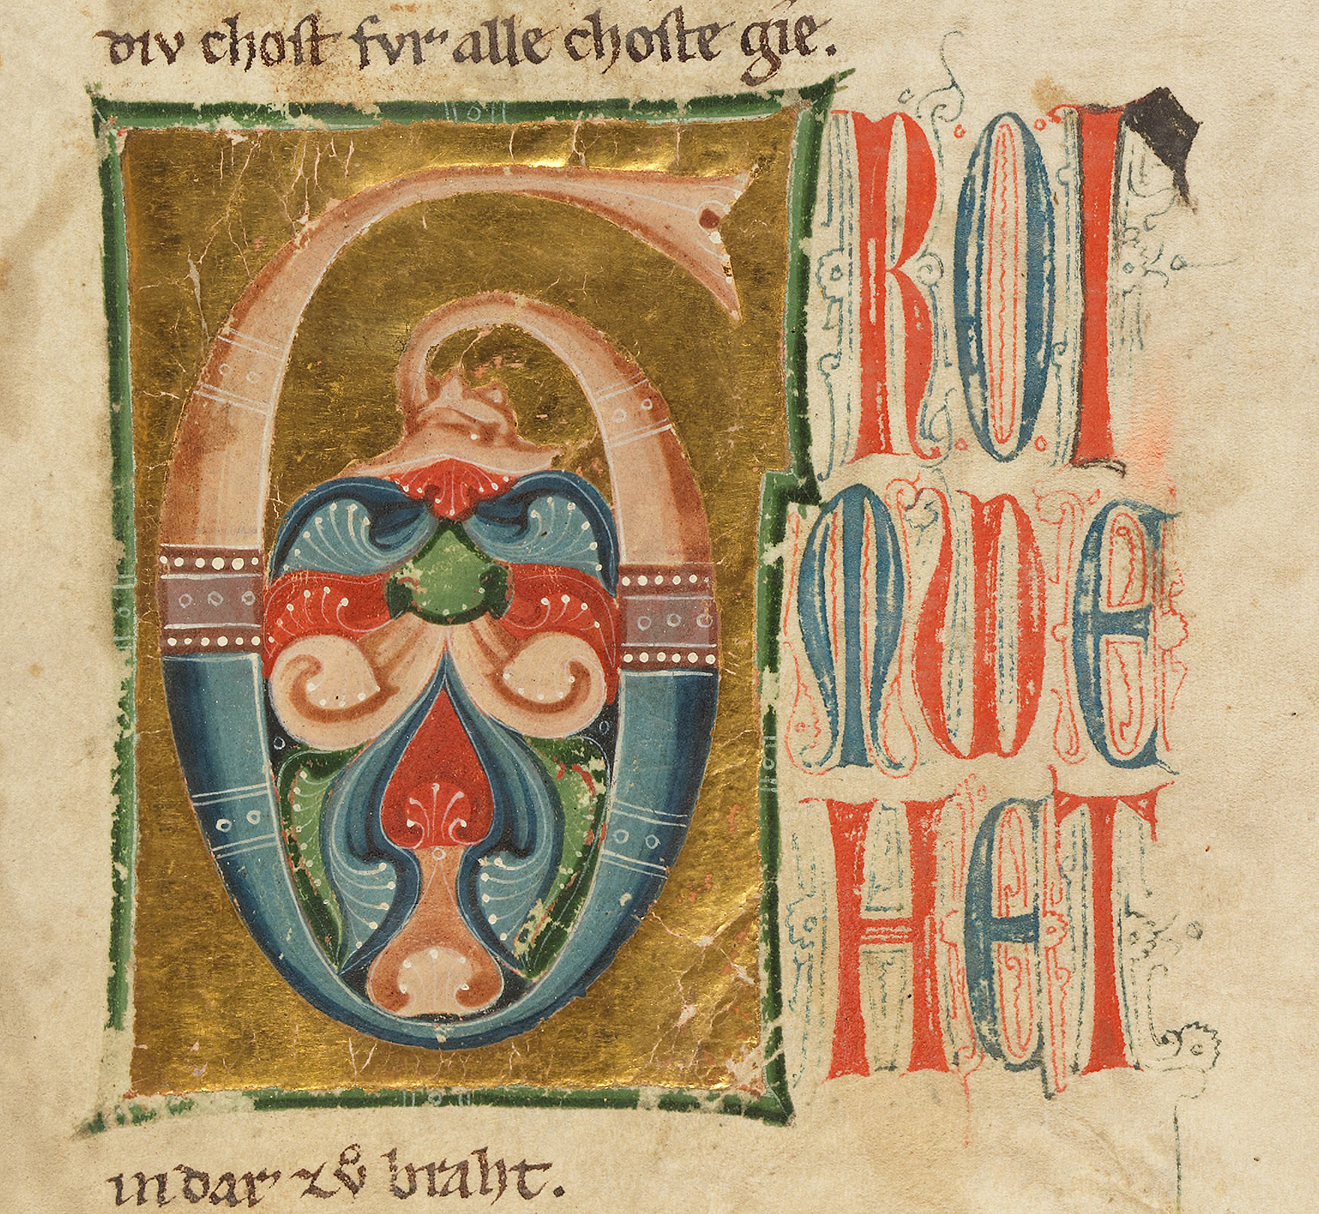 div chost fvr alle choste gie.
GROI
MWE
HET
in dar zvͦ braht.